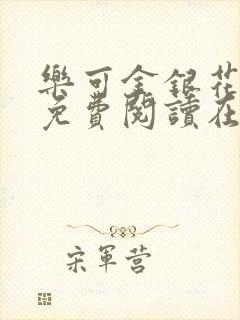 樂可金銀花
免費閱讀在
宋軍营